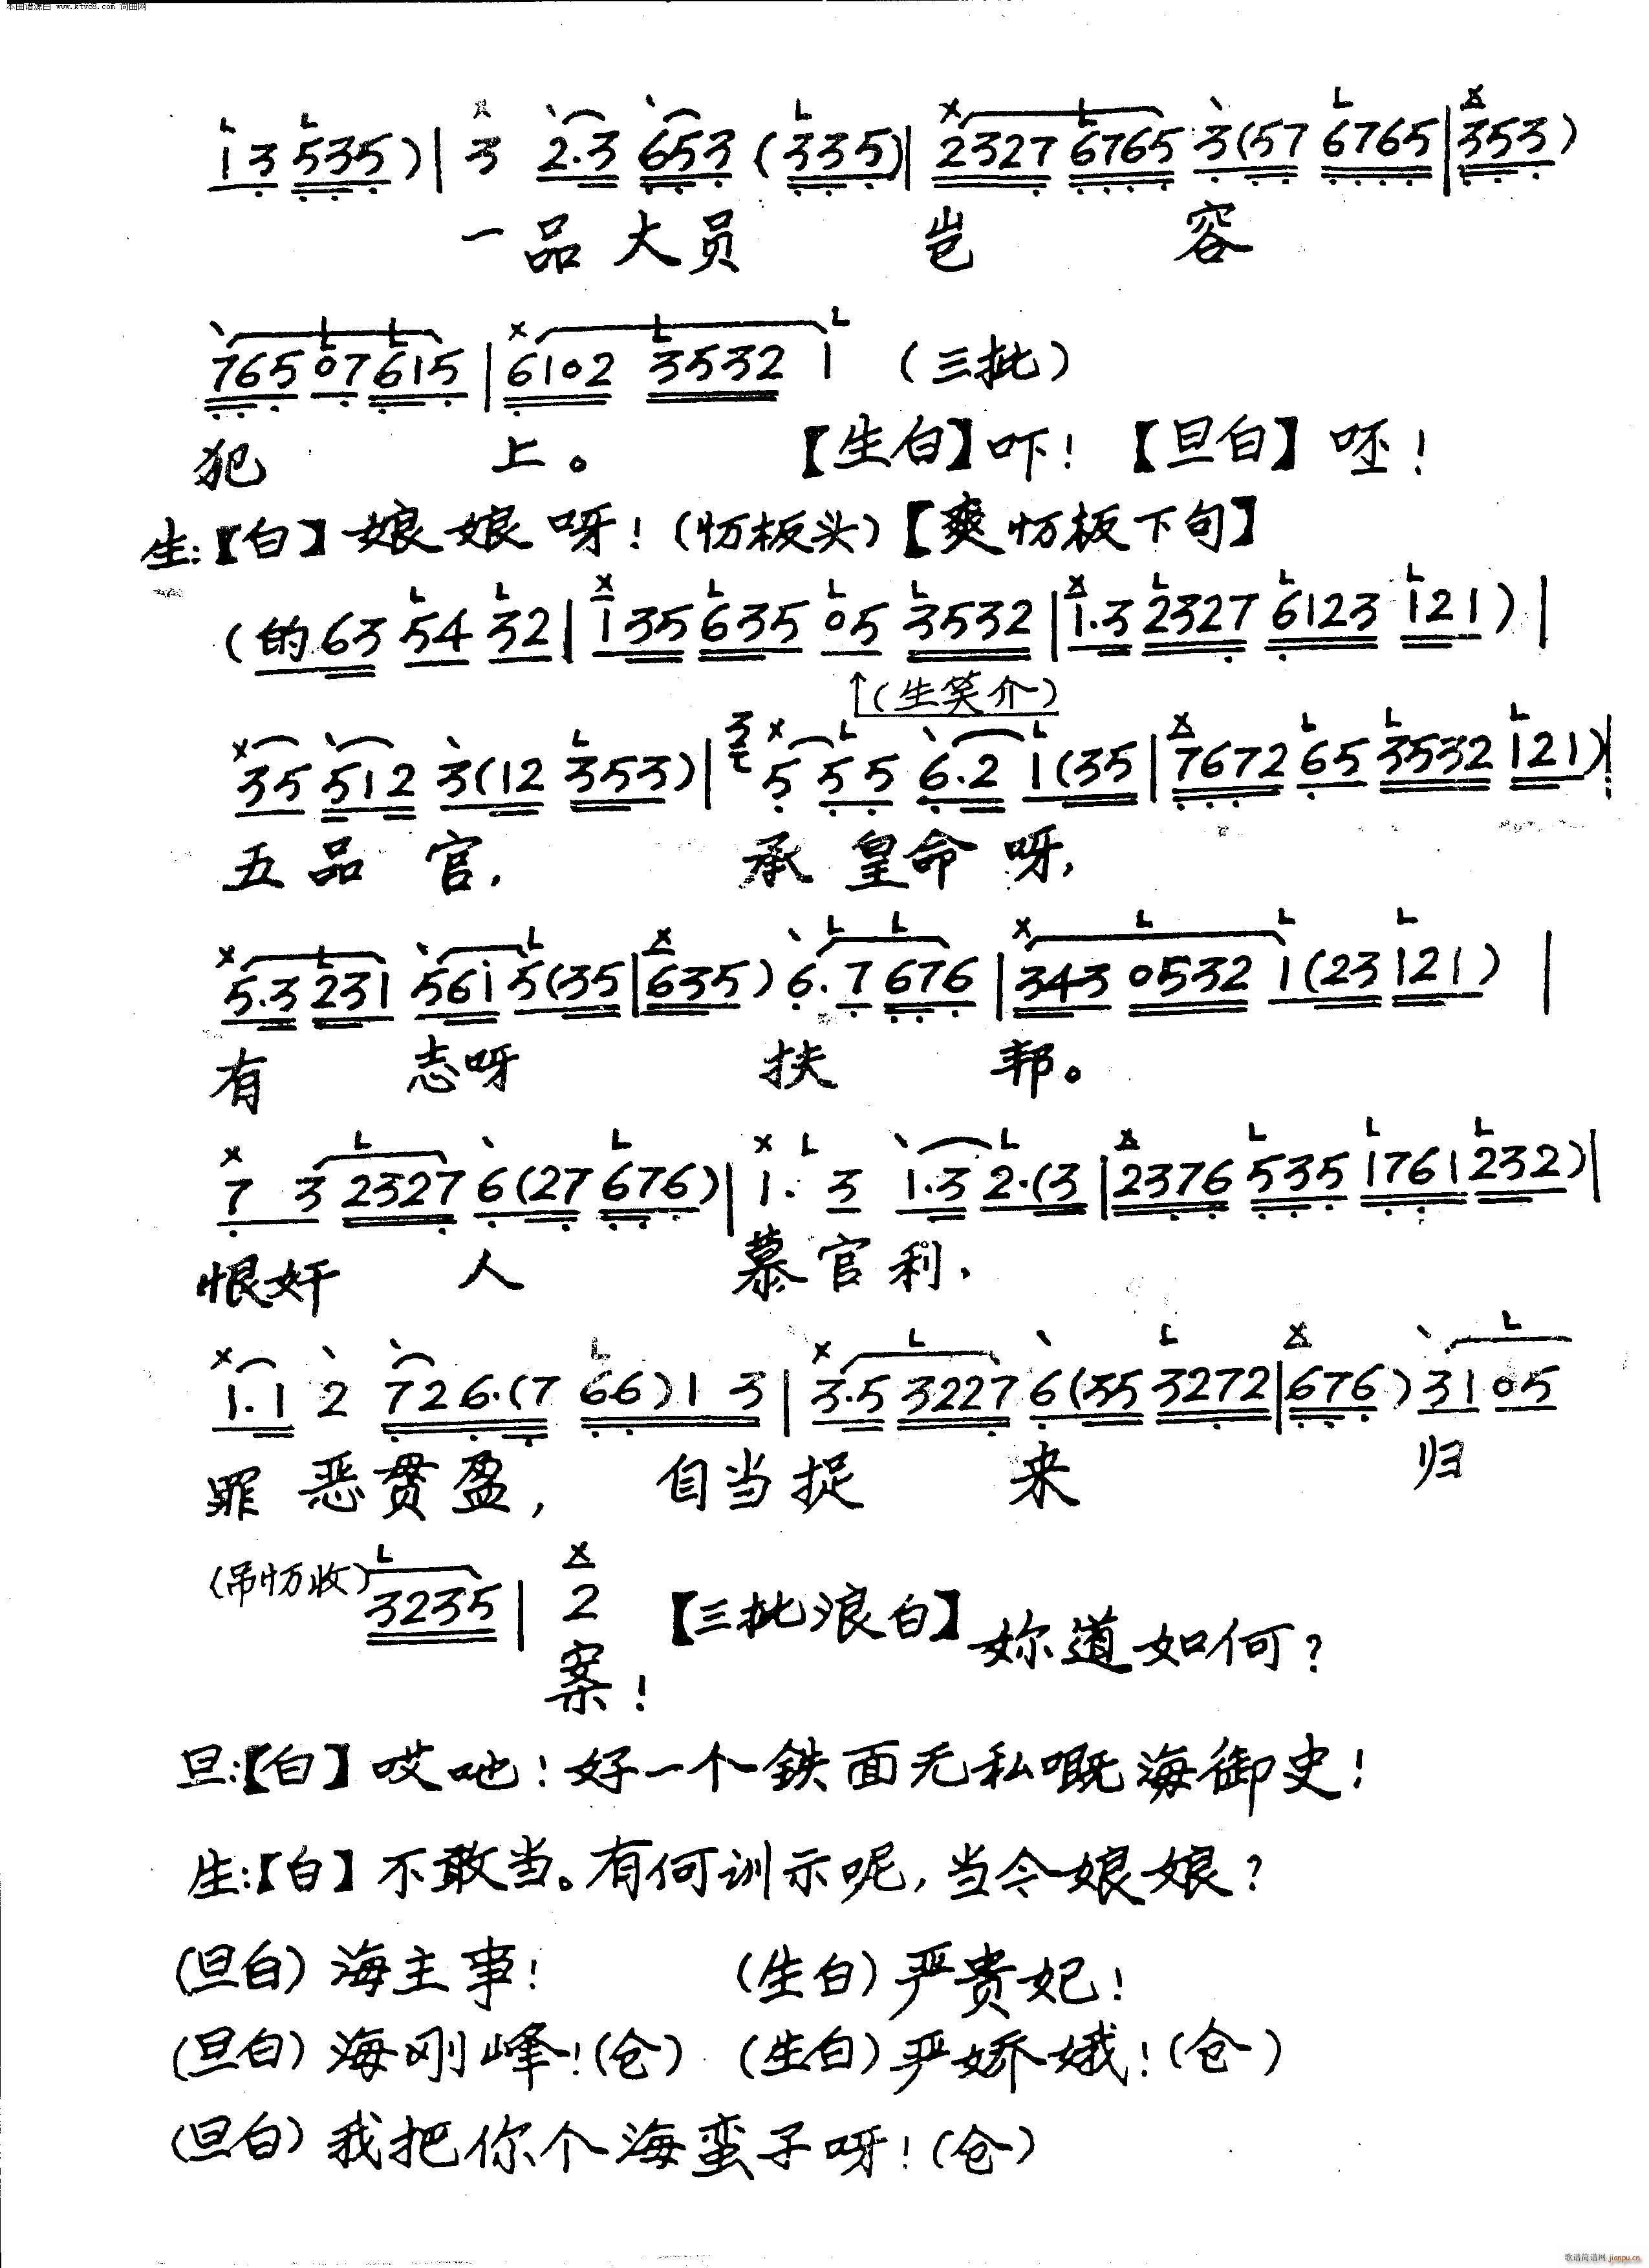 本曲谱源自 www.ktvc8.com 词曲网
1 3 5 3 5 ) | 3 2.3 6 5 3 ( 3 3 5 ) | 2 3 2 7 6 7 6 5 3 ( 5 7 6 7 6 5 | 3 5 3 )
一品大员 岂 容
7 6 5 0 7 6 1 5 | 6 1 0 2 3 5 3 2 1 (三批)
犯 上。 【生白】吓！【旦白】呸！
生:【白】娘娘呀！(忉板头)【爽忉板下句】
( 的 6 3 5 4 3 2 | 1 3 5 6 3 5 0 5 3 5 3 2 | 1.3 2 3 2 7 6 1 2 3 1 2 1 ) |
↑(生笑介)
3 5 5 1 2 3 ( 1 2 3 5 3 ) | 5 5 5 6.2 1 ( 3 5 | 7 6 7 2 6 5 3 5 3 2 1 2 1 ) |
五品官, 承皇命呀,
5.3 2 3 1 5 6 1 5 ( 3 5 | 6 3 5 ) 6.7 6 7 6 | 3 4 3 0 5 3 2 1 ( 2 3 1 2 1 ) |
有 志呀 扶 邦。
7 3 2 3 2 7 6 ( 2 7 6 7 6 ) | 1. 3 1.3 2.( 3 | 2 3 7 6 5 3 5 1 7 6 1 2 3 2 ) |
恨奸 人 慕官利,
1.1 2 7 2 6.( 7 6 6 ) 1 3 | 3.5 3 2 2 7 6 ( 3 5 3 2 7 2 | 6 7 6 ) 3 1 0 5
罪恶贯盈, 自当捉 来 归
(吊忉收) 3 2 3 5 | 2 【三批浪白】妳道如何？
案！
旦:【白】哎吔！好一个铁面无私嘅海御史！
生:【白】不敢当。有何训示呢,当今娘娘？
(旦白)海主事！ (生白)严贵妃！
(旦白)海刚峰！(仓) (生白)严娇娥！(仓)
(旦白)我把你个海蛮子呀！(仓)
歌谱简谱网 jianpu.cn